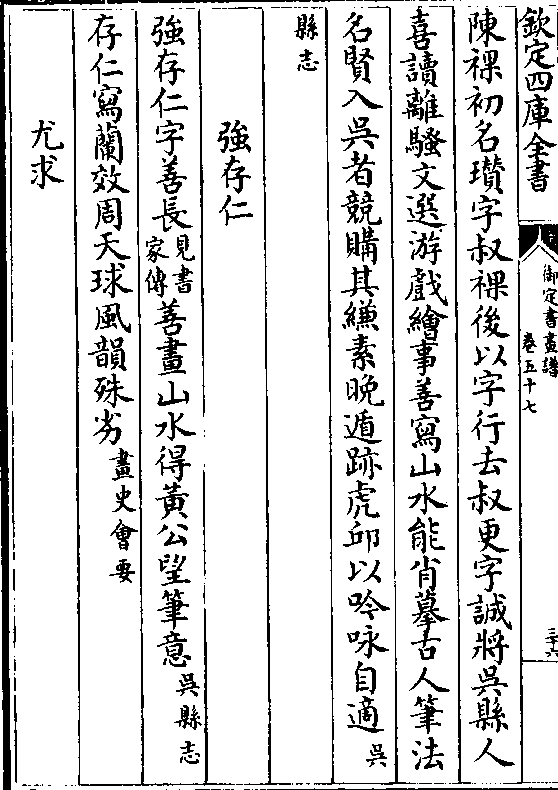 欽定四庫全書
御定書畫譜
卷五十七
三十六
陳祼初名瓚字叔祼後以字行去叔更字誠將吳縣人
喜讀離騷文選游戲繪事善寫山水能肖摹古人筆法
名賢入吳者競購其縑素晚遁跡虎邱以吟咏自適吳
縣志
強存仁
強存仁字善長見書家傳善畫山水得黃公望筆意吳縣志
存仁寫蘭效周天球風韻殊劣畫史會要
尤求